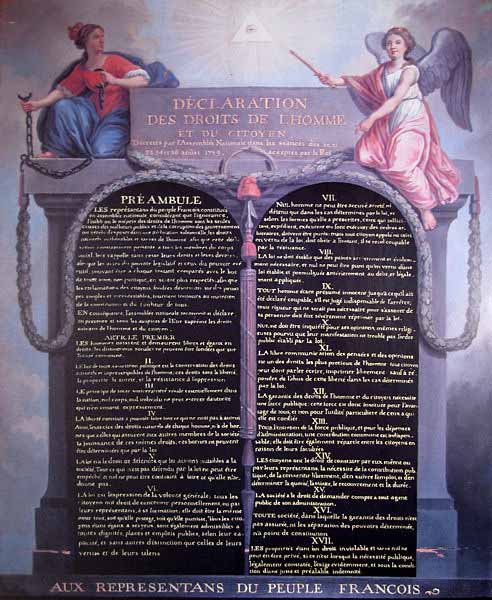 DÉCLARATION
DES DROITS DE L'HOMME
ET DU CITOYEN
Décrétés par l'Assemblée Nationale dans les séances des 20, 21
23, 24 et 26 août 1789, acceptés par le Roi
PRÉAMBULE
LES représentans du peuple François constitués
en assemblée nationale, considérant que l'ignorance,
l'oubli ou le mépris des droits de l'homme sont les seules
causes des malheurs publics et de la corruption des gouvernemens
ont résolu d'exposer dans une déclaration solemnelle, les droits
naturels, inaliénables et sacrés de l'homme, afin que cette dé-
claration constamment présente à tous les membres du corps
social, leur rappelle sans cesse leurs droits et leurs devoirs,
afin que les actes du pouvoir législatif et ceux du pouvoir exé-
cutif, pouvant être à chaque instant comparés avec le but
de toute institution politique, en soient plus respectés, afin que
les réclamations des citoyens, fondées désormais sur des princi-
pes simples et incontestables, tournent toujours au maintien
de la constitution et du bonheur de tous.
EN conséquence, l'assemblée nationale reconnoit et déclare
en présence et sous les auspices de l'Etre suprême les droits
suivans de l'homme et du citoyen.
ARTICLE PREMIER
LES hommes naissent et demeurent libres et égaux en
droits, les distinctions sociales ne peuvent être fondées que sur
l'utilité commune.
II.
LE but de toute association politique est la conservation des droits
naturels et imprescriptibles de l'homme, ces droits sont la liberté,
la propriété, la sureté, et la résistance à l'oppression.
III.
LE principe de toute souveraineté réside essentiellement dans
la nation, nul corps, nul individu ne peut exercer d'autorité
qui n'en émane expressément.
IV.
LA liberté consiste à pouvoir faire tout ce qui ne nuit pas à autrui
Ainsi, l'exercice des droits naturels de chaque homme, n'a de bor-
nes que celles qui assurent aux autres membres de la société
la jouissance de ces mêmes droits, ces bornes ne peuvent
être déterminées que par la loi
V.
LA loi n'a le droit de défendre que les actions nuisibles à la
société. Tout ce qui n'est pas défendu par la loi ne peut être
empêché, et nul ne peut être contraint à faire ce qu'elle n'or-
donne pas.
VI.
LA loi est l'expression de la volonté générale, tous les
citoyens ont droit de concourir personnellement, ou par
leurs représentans, à sa formation, elle doit être la même
pour tous, soit qu'elle protege, soit qu'elle punisse. Tous les ci-
toyens étant égaux à ses yeux, sont également admissibles à
toutes dignités, places et emplois publics, selon leur ca-
pacité, et sans autres distinction que celles de leurs
vertus et de leurs talens.
VII.
NUL homme ne peut être accusé, arreté ni
détenu que dans les cas déterminés par la loi, et
selon les formes qu'elle a prescrites, ceux qui sollici-
tent, expédient, exécutent ou font exécuter des ordres ar-
bitraires, doivent être punis, mais tout citoyen appelé ou saisi
en vertu de la loi, doit obéir à l'instant, il se rend coupable
par la résistance.
VIII.
LA loi ne doit établir que des peines strictement et évidem-
ment nécessaires, et nul ne peut être puni qu'en vertu d'une
loi établie et promulguée antérieurement au délit, et légale-
ment appliquée.
IX.
TOUT homme étant présumé innocent jusqu'à ce qu'il ait
été déclaré coupable, s'il est jugé indispensable de l'arrêter,
toute rigueur qui ne seroit pas nécessaire pour s'assurer de
sa personne doit être sévèrement réprimée par la loi.
X.
NUL ne doit être inquiété pour ses opinions, mêmes religi-
euses pourvu que leur manifestation ne trouble pas l'ordre
public établi par la loi.
XI.
LA libre communication des pensées et des opinions
est un des droits les plus précieux de l'homme, tout citoyen
peut donc parler, écrire, imprimer librement, sauf à ré-
pondre de l'abus de cette liberté dans les cas déterminés
par la loi.
XII.
LA garantie des droits de l'homme et du citoyen nécessite
une force publique, cette force est donc instituée pour l'avan-
tage de tous, et non pour l'utilité particuliere de ceux à qui
elle est confiée.
XIII.
Pour l'entretien de la force publique, et pour les dépenses
d'administration, une contribution commune est indispen-
sable, elle doit être également répartie entre les citoyens en
raison de leurs facultées.
XIV.
LES citoyens ont le droit de constater par eux même ou
par leurs représentans, la nécessité de la contribution pub-
lique, de la consentir librement, d'en suivre l'emploi, et d'en
déterminer la quotité, l'assiette, le recouvrement et la durée.
XV.
LA société a le droit de demander compte à tout agent
public de son administration.
XVI.
TOUTE société, dans laquelle la garantie des droits n'est
pas assurée, ni la séparation des pouvoirs déterminée,
n'a point de constitution
XVII.
LES propriétés étant un droit inviolable et sacré, nul ne
peut en être privé, si ce n'est lorsque la nécessité publique,
légalement constatée, l'exige évidemment, et sous la condition
d'une juste et préalable indemnité.
AUX REPRESENTANS DU PEUPLE FRANCOIS